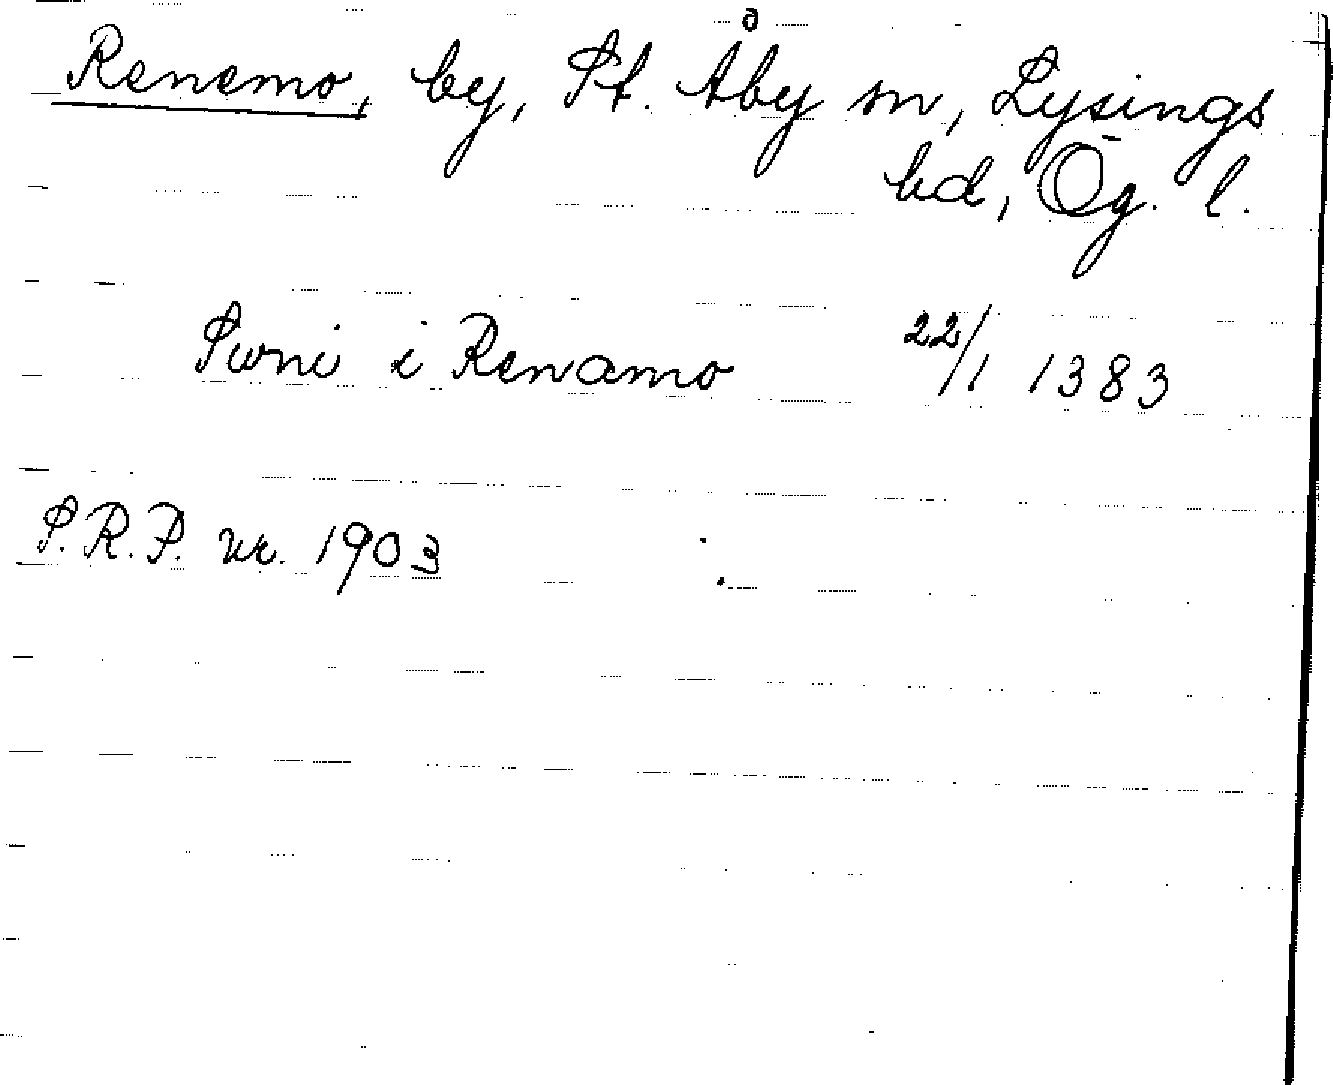 Renemo, by, St. Åby sn, Lysings
hd, Ög. l.
Swni i Renamo 22/1 1383
S.R.P. nr. 1903